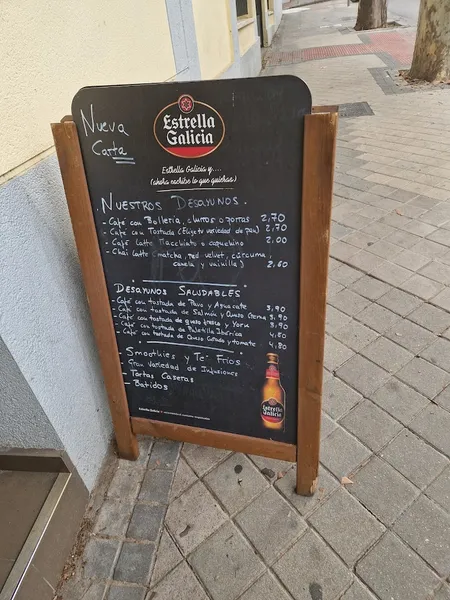 Nueva
Carta
Estrella
Galicia
Estrella Galicia y....
(ahora escribe lo que quieras)
NUESTROS DESAYUNOS.
- Café con Bollería, churros o porras 2,70
- Café con Tostada (Elige tu variedad de pan) 2,70
- Café Latte Macchiato o capuchino 2,00
- Chai Latte (matcha, red velvet, cúrcuma,
canela y vainilla) 2,60
DESAYUNOS SALUDABLES
- Café con tostada de Pavo y Aguacate 3,90
- Café con tostada de Salmón y Queso Crema 3,90
- Café con tostada de queso fresco y York 3,90
- Café con tostada de Paletilla Ibérica 4,50
- Café con tostada de Queso Curado y tomate 4,50
- Smoothies y Té Fríos
Gran variedad de Infusiones
- Tartas Caseras
- Batidos
Estrella
Galicia